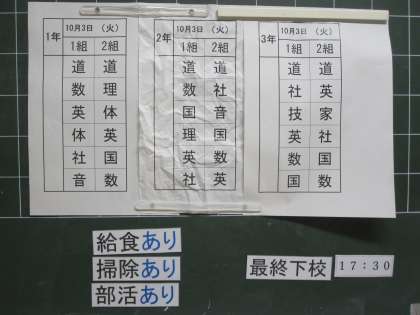 1年 10月3日 (火)
1組 2組
道 道
数 理
英 体
体 英
社 国
音 数
2年 10月3日 (火)
1組 2組
道 道
数 社
国 音
理 国
英 数
社 英
3年 10月3日 (火)
1組 2組
道 道
社 英
技 家
英 社
数 国
国 数
給食あり
掃除あり
部活あり
最終下校 17:30